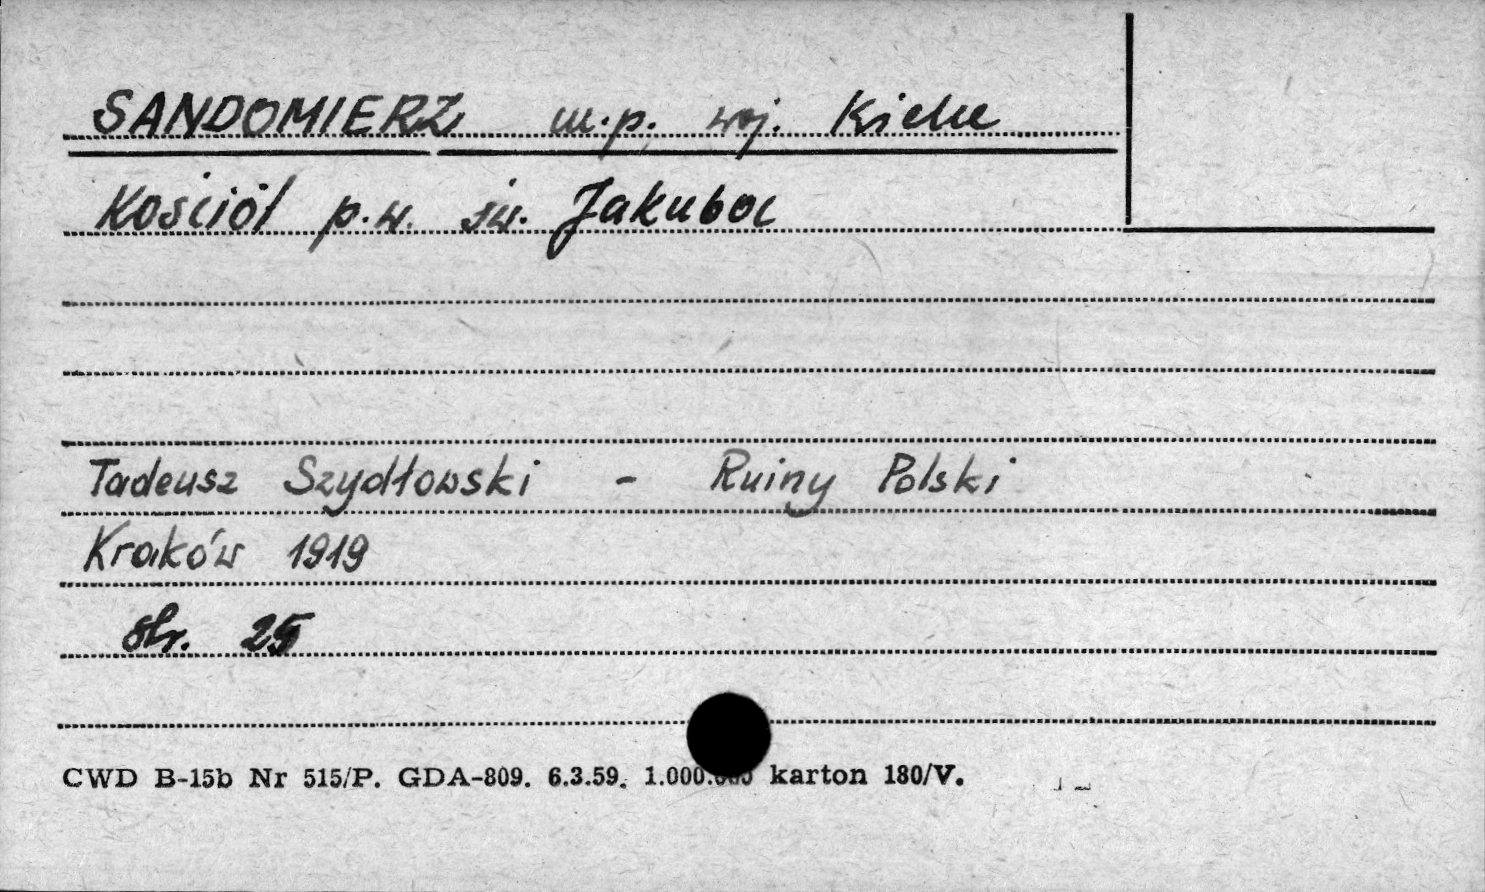 SANDOMIERZ m.p. woj. Kielce
Kościół p.w. św. Jakuba
Tadeusz Szydłowski - Ruiny Polski
Kraków 1919
str. 25
CWD B-15b Nr 515/P. GDA-809. 6.3.59. 1.000.000 karton 180/V.